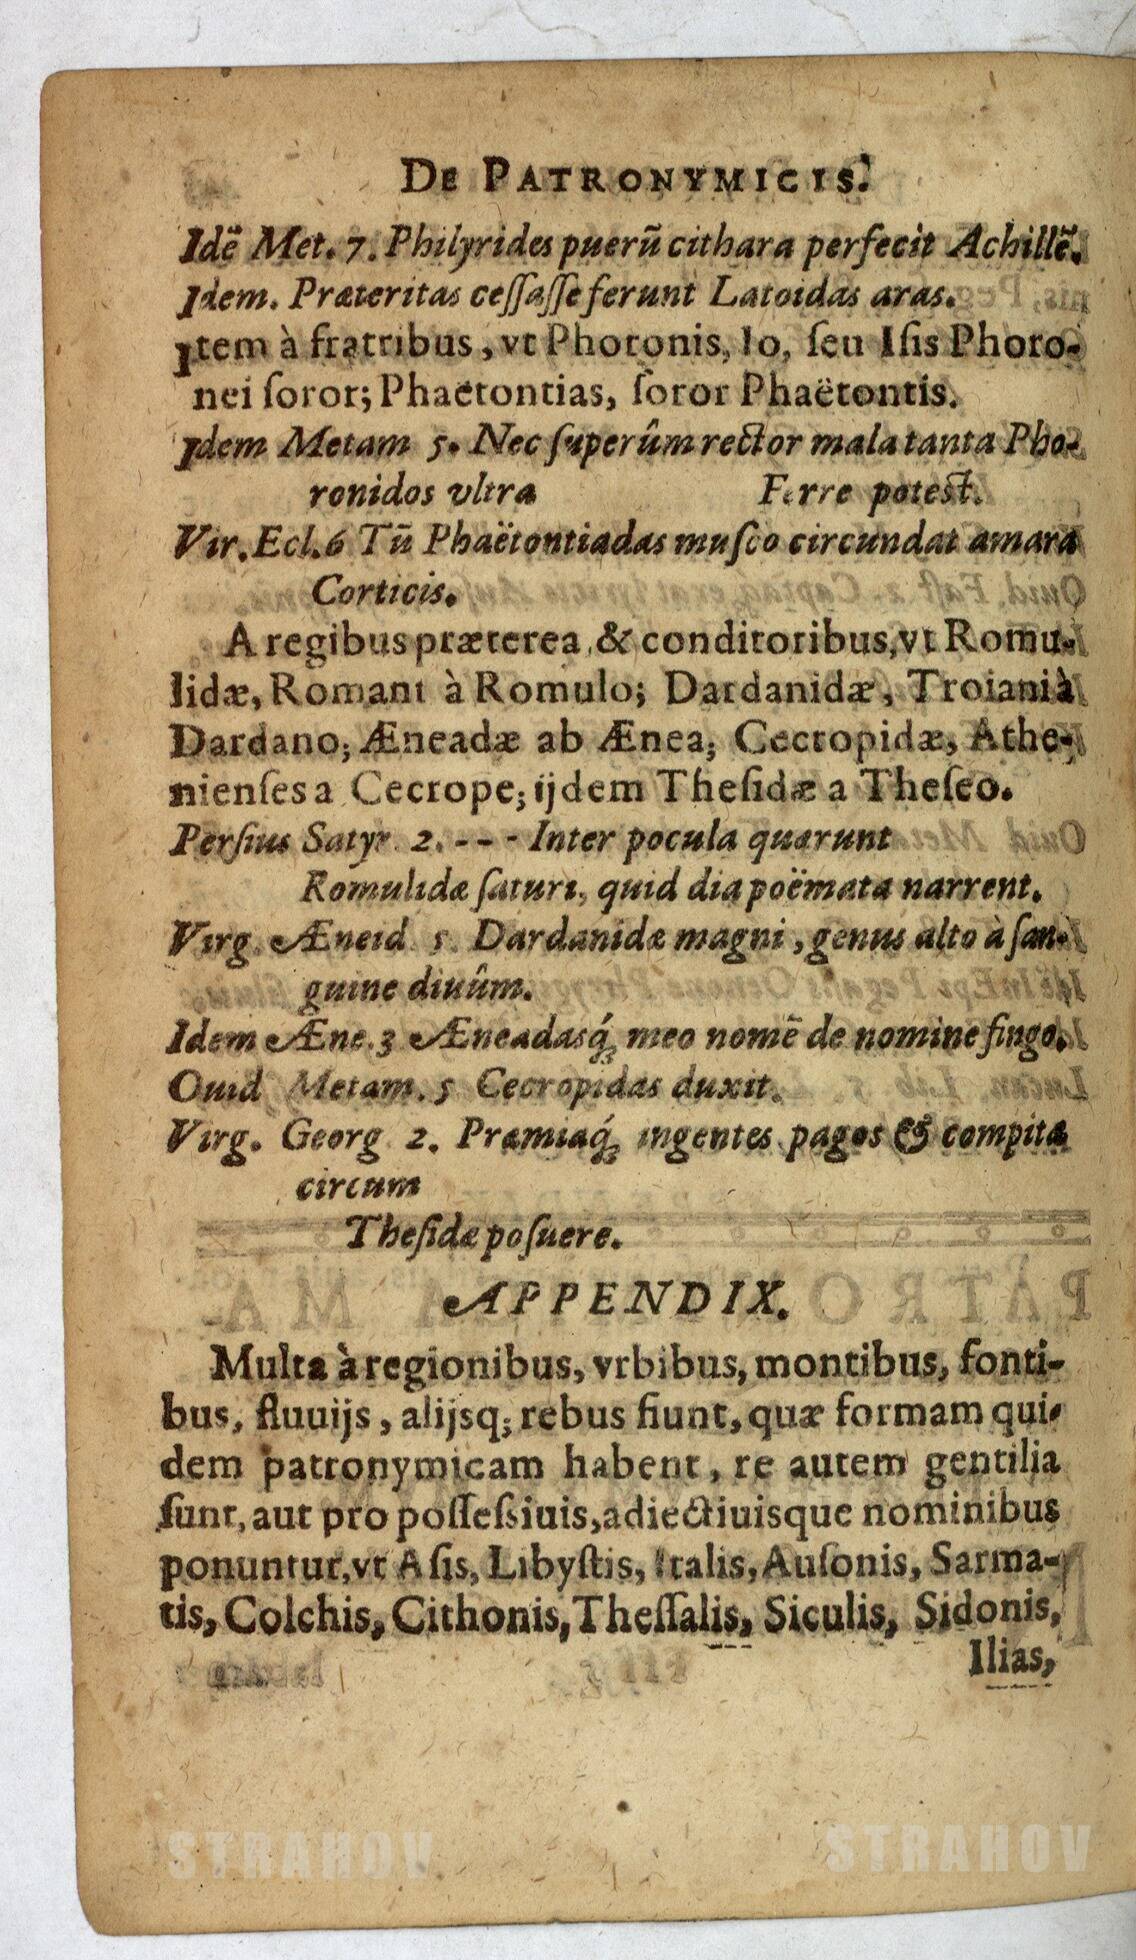 DE PATRONYMICIS.
Idē Met. 7. Philyrides puerū cithara perfecit Achillē.
Idem. Præteritas ceſſaſſe ferunt Latoidas aras.
Item à fratribus, vt Phoronis, Io, ſeu Iſis Phoro-
nei ſoror; Phaëtontias, ſoror Phaëtontis.
Idem Metam 5. Nec ſuperûm rector mala tanta Pho-
ronidos vltra Ferre poteſt.
Vir. Ecl. 6 Tū Phaëtontiadas muſco circundat amara
Corticis.
A regibus præterea, & conditoribus, vt Romu-
lidæ, Romani à Romulo; Dardanidæ, Troiani à
Dardano; Æneadæ ab Ænea; Cecropidæ, Athe-
nienſes a Cecrope; ijdem Theſidæ a Theſeo.
Perſius Satyr. 2. - - - Inter pocula quærunt
Romulidæ ſaturi, quid dia poëmata narrent.
Virg. Æneid 5. Dardanidæ magni, genus alto à ſan-
guine diuûm.
Idem Æne. 3 Æneadasq́; meo nomē de nomine fingo.
Ouid Metam. 5 Cecropidas duxit.
Virg. Georg 2. Præmiaq́; ingentes pagos & compita
circum
Theſidæ poſuere.
APPENDIX.
Multa à regionibus, vrbibus, montibus, fonti-
bus, fluuijs, alijsq; rebus fiunt, quæ formam qui-
dem patronymicam habent, re autem gentilia
ſunt, aut pro poſſeſsiuis, adiectiuisque nominibus
ponuntur, vt Aſis, Libyſtis, Italis, Auſonis, Sarma-
tis, Colchis, Cithonis, Theſſalis, Siculis, Sidonis,
Ilias,
STRAHOV STRAHOV